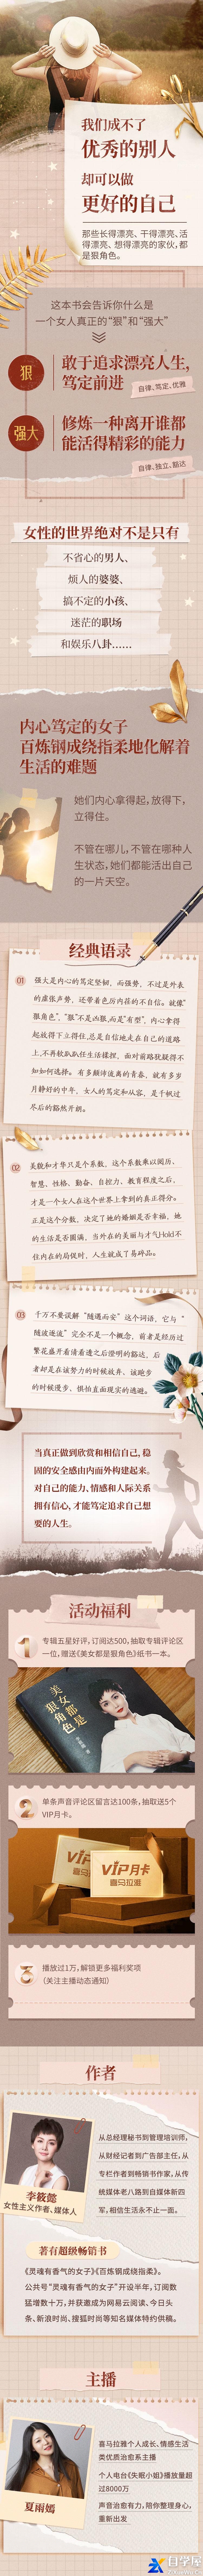 我们成不了
优秀的别人
却可以做
更好的自己
那些长得漂亮、干得漂亮、活
得漂亮、想得漂亮的家伙,都
是狠角色。
这本书会告诉你什么是
一个女人真正的“狠”和“强大”
狠
敢于追求漂亮人生,
笃定前进
自律、笃定、优雅
强大
修炼一种离开谁都
能活得精彩的能力
自律、独立、豁达
女性的世界绝对不是只有
不省心的男人、
烦人的婆婆、
搞不定的小孩、
迷茫的职场
和娱乐八卦……
内心笃定的女子
百炼钢成绕指柔地化解着
生活的难题
她们内心拿得起,放得下,
立得住。
不管在哪儿,不管在哪种人
生状态,她们都能活出自己
的一片天空。
经典语录
01
强大是内心的笃定坚韧,而强势,不过是外表
的虚张声势、还带着色厉内荏的不自信。就像“
狠角色”,“狠”不是凶狠,而是“有型”,内心拿得
起放得下立得住,总是自信地走在自己的道路
上,不再软趴趴任生活揉捏、面对前路犹疑得不
知如何选择。有多颠沛流离的青春,就有多岁
月静好的中年,女人的笃定和从容,是千帆过
尽后的豁然开朗。
02
美貌和才华只是个系数,这个系数乘以阅历、
智慧、性格、勤奋、自控力、教育程度之后,
才是一个女人在这个世界上拿到的真正得分。
正是这个分数,决定了她的婚姻是否幸福,她
的生活是否圆满,当外在的美丽与才气Hold不
住内在的局促时,人生就成了易碎品。
03
千万不要误解“随遇而安”这个词语,它与“
随波逐流”完全不是一个概念,前者是经历过
繁花盛开看清看透之后澄明的豁达,后
者却是在该努力的时候放弃、该跑步
的时候漫步、惧怕直面现实的逃避。
当真正做到欣赏和相信自己,稳
固的安全感由内而外构建起来。
对自己的能力、情感和人际关系
拥有信心,才能笃定追求自己想
要的人生。
活动福利
1
专辑五星好评,订阅达500,抽取专辑评论区
一位,赠送《美女都是狠角色》纸书一本。
美女都是
狠角色
2
单条声音评论区留言达100条,抽取送5个
VIP月卡。
VIP
VIP月卡
喜马拉雅
3
播放过1万,解锁更多福利奖项
(关注主播动态通知)
作者
李筱懿
女性主义作者、媒体人
从总经理秘书到管理培训师,
从财经记者到广告部主任,从
专栏作者到畅销书作家,从传
统媒体老八路到自媒体新四
军,相信生活永不止一面。
著有超级畅销书
《灵魂有香气的女子》《百炼钢成绕指柔》。
公共号“灵魂有香气的女子”开设半年,订阅数
猛增数十万,并获邀成为网易云阅读、今日头
条、新浪时尚、搜狐时尚等知名媒体特约供稿。
主播
夏雨嫣
喜马拉雅个人成长、情感生活
类优质治愈系主播
个人电台《失眠小姐》播放量超
过8000万
声音治愈有力,陪你整理身心,
重新出发
自学库